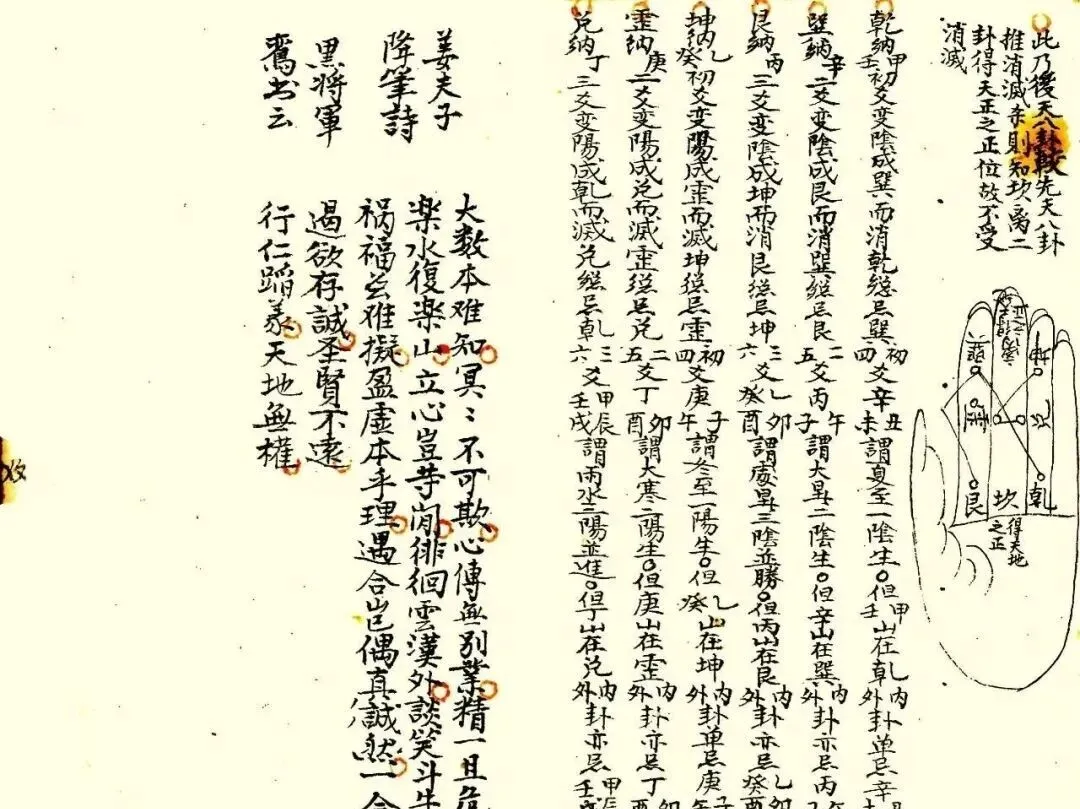 此乃後天八卦較先天八卦
推消滅亦則知坎离二
卦得天正之正位故不受
消滅
乾納甲壬初爻变陰成巽而消乾緫忌巽初四爻辛丑未謂夏至一陰生但甲壬山在乾内外卦单忌辛丑
巽納辛二爻变陰成艮而消巽緫忌艮二五爻丙午子謂大暑二陰生但辛山在巽内外卦亦忌丙午
艮納丙三爻变陰成坤而消艮緫忌坤三六爻乙癸卯酉謂處暑三陰並勝但丙山在艮内外卦亦忌乙癸
坤納乙癸初爻变陽成䨓而滅坤緫忌䨓初四爻庚子午謂冬至一陽生但乙癸山在坤内外卦单忌庚子午
䨓納庚二爻变陽成兑而滅䨓緫忌兑二五爻丁卯酉謂大寒二陽生但庚山在䨓内外卦亦忌丁
兑納丁三爻变陽成乾而滅兑緫忌乾三六爻甲壬辰戌謂雨水三陽並進但丁山在兑内外卦亦忌甲壬
坤
兑
乾
离
坎
得天地
之正
巽
䨓
艮
姜夫子
降筆詩
黒将軍
鸞出云
大数本难知冥〻不可欺心傳無别業精一且危
楽水復楽山立心豈等闲徘徊雲漢外談笑斗牛
祸福玄难擬盈虚本乎理遇合岂偶真誠然一合
遏欲存誠圣賢不遠
行仁蹈義天地無權